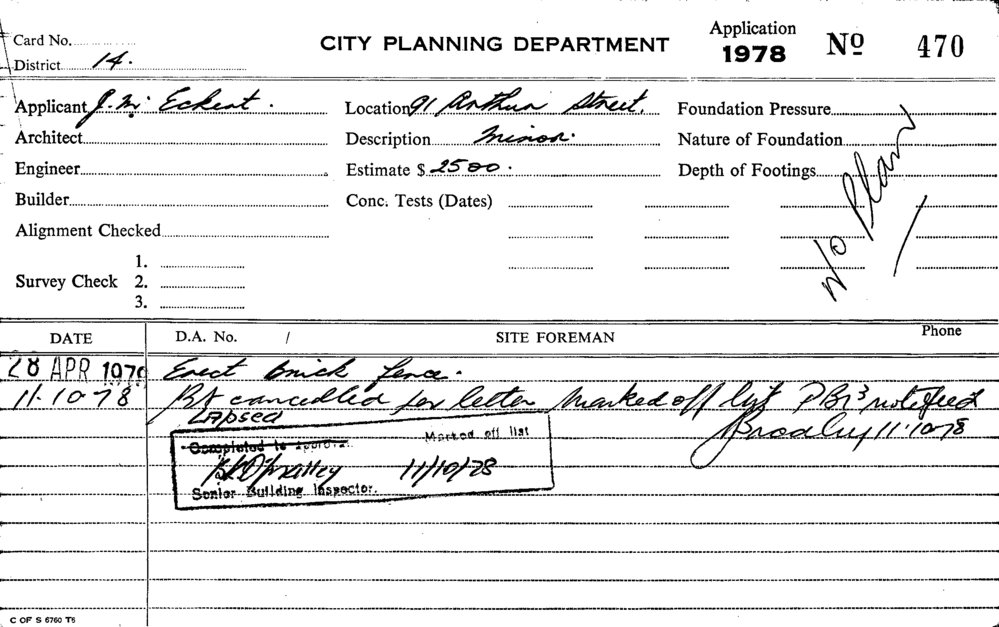 Card No.
District 14.
CITY PLANNING DEPARTMENT
Application
1978
No 470
Applicant J. M. Eckert.
Location 91 Arthur Street.
Foundation Pressure
Architect
Description Minor.
Nature of Foundation
Engineer
Estimate $ 2500.
Depth of Footings
Builder
Conc. Tests (Dates)
Alignment Checked
Survey Check
1.
2.
3.
Plan
DATE
D.A. No. /
SITE FOREMAN
Phone
28 APR 1978
Erect brick fence.
11.10.78
BA cancelled per letter Marked off list notified
11.10.78
Lapsed
Completed to approval. Marked off list
11/10/78
Senior Building Inspector.
C OF S 6760 T5